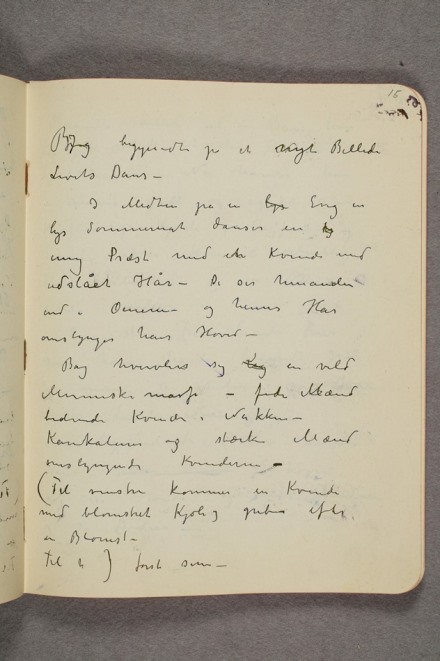 15
Jeg begyndte på et nyt Billede
Livets Dans —
I Midten på en Eng en
lys Sommernat danser en
ung Præst med en Kvinde med
udslået Hår — De ser hinanden
ind i Øinene — og hennes Hår
omslynger hans Hoved —
Bag hvirvler sig en vild
Menneske masse — fede Mænd
bidende Kvinder i Nakken —
Karikaturer og stærke Mænd
omslyngende Kvinderne —
(Til venstre kommer en Kvinde
med blomstret Kjole griber efter
en Blomst —
Til h ) først som —